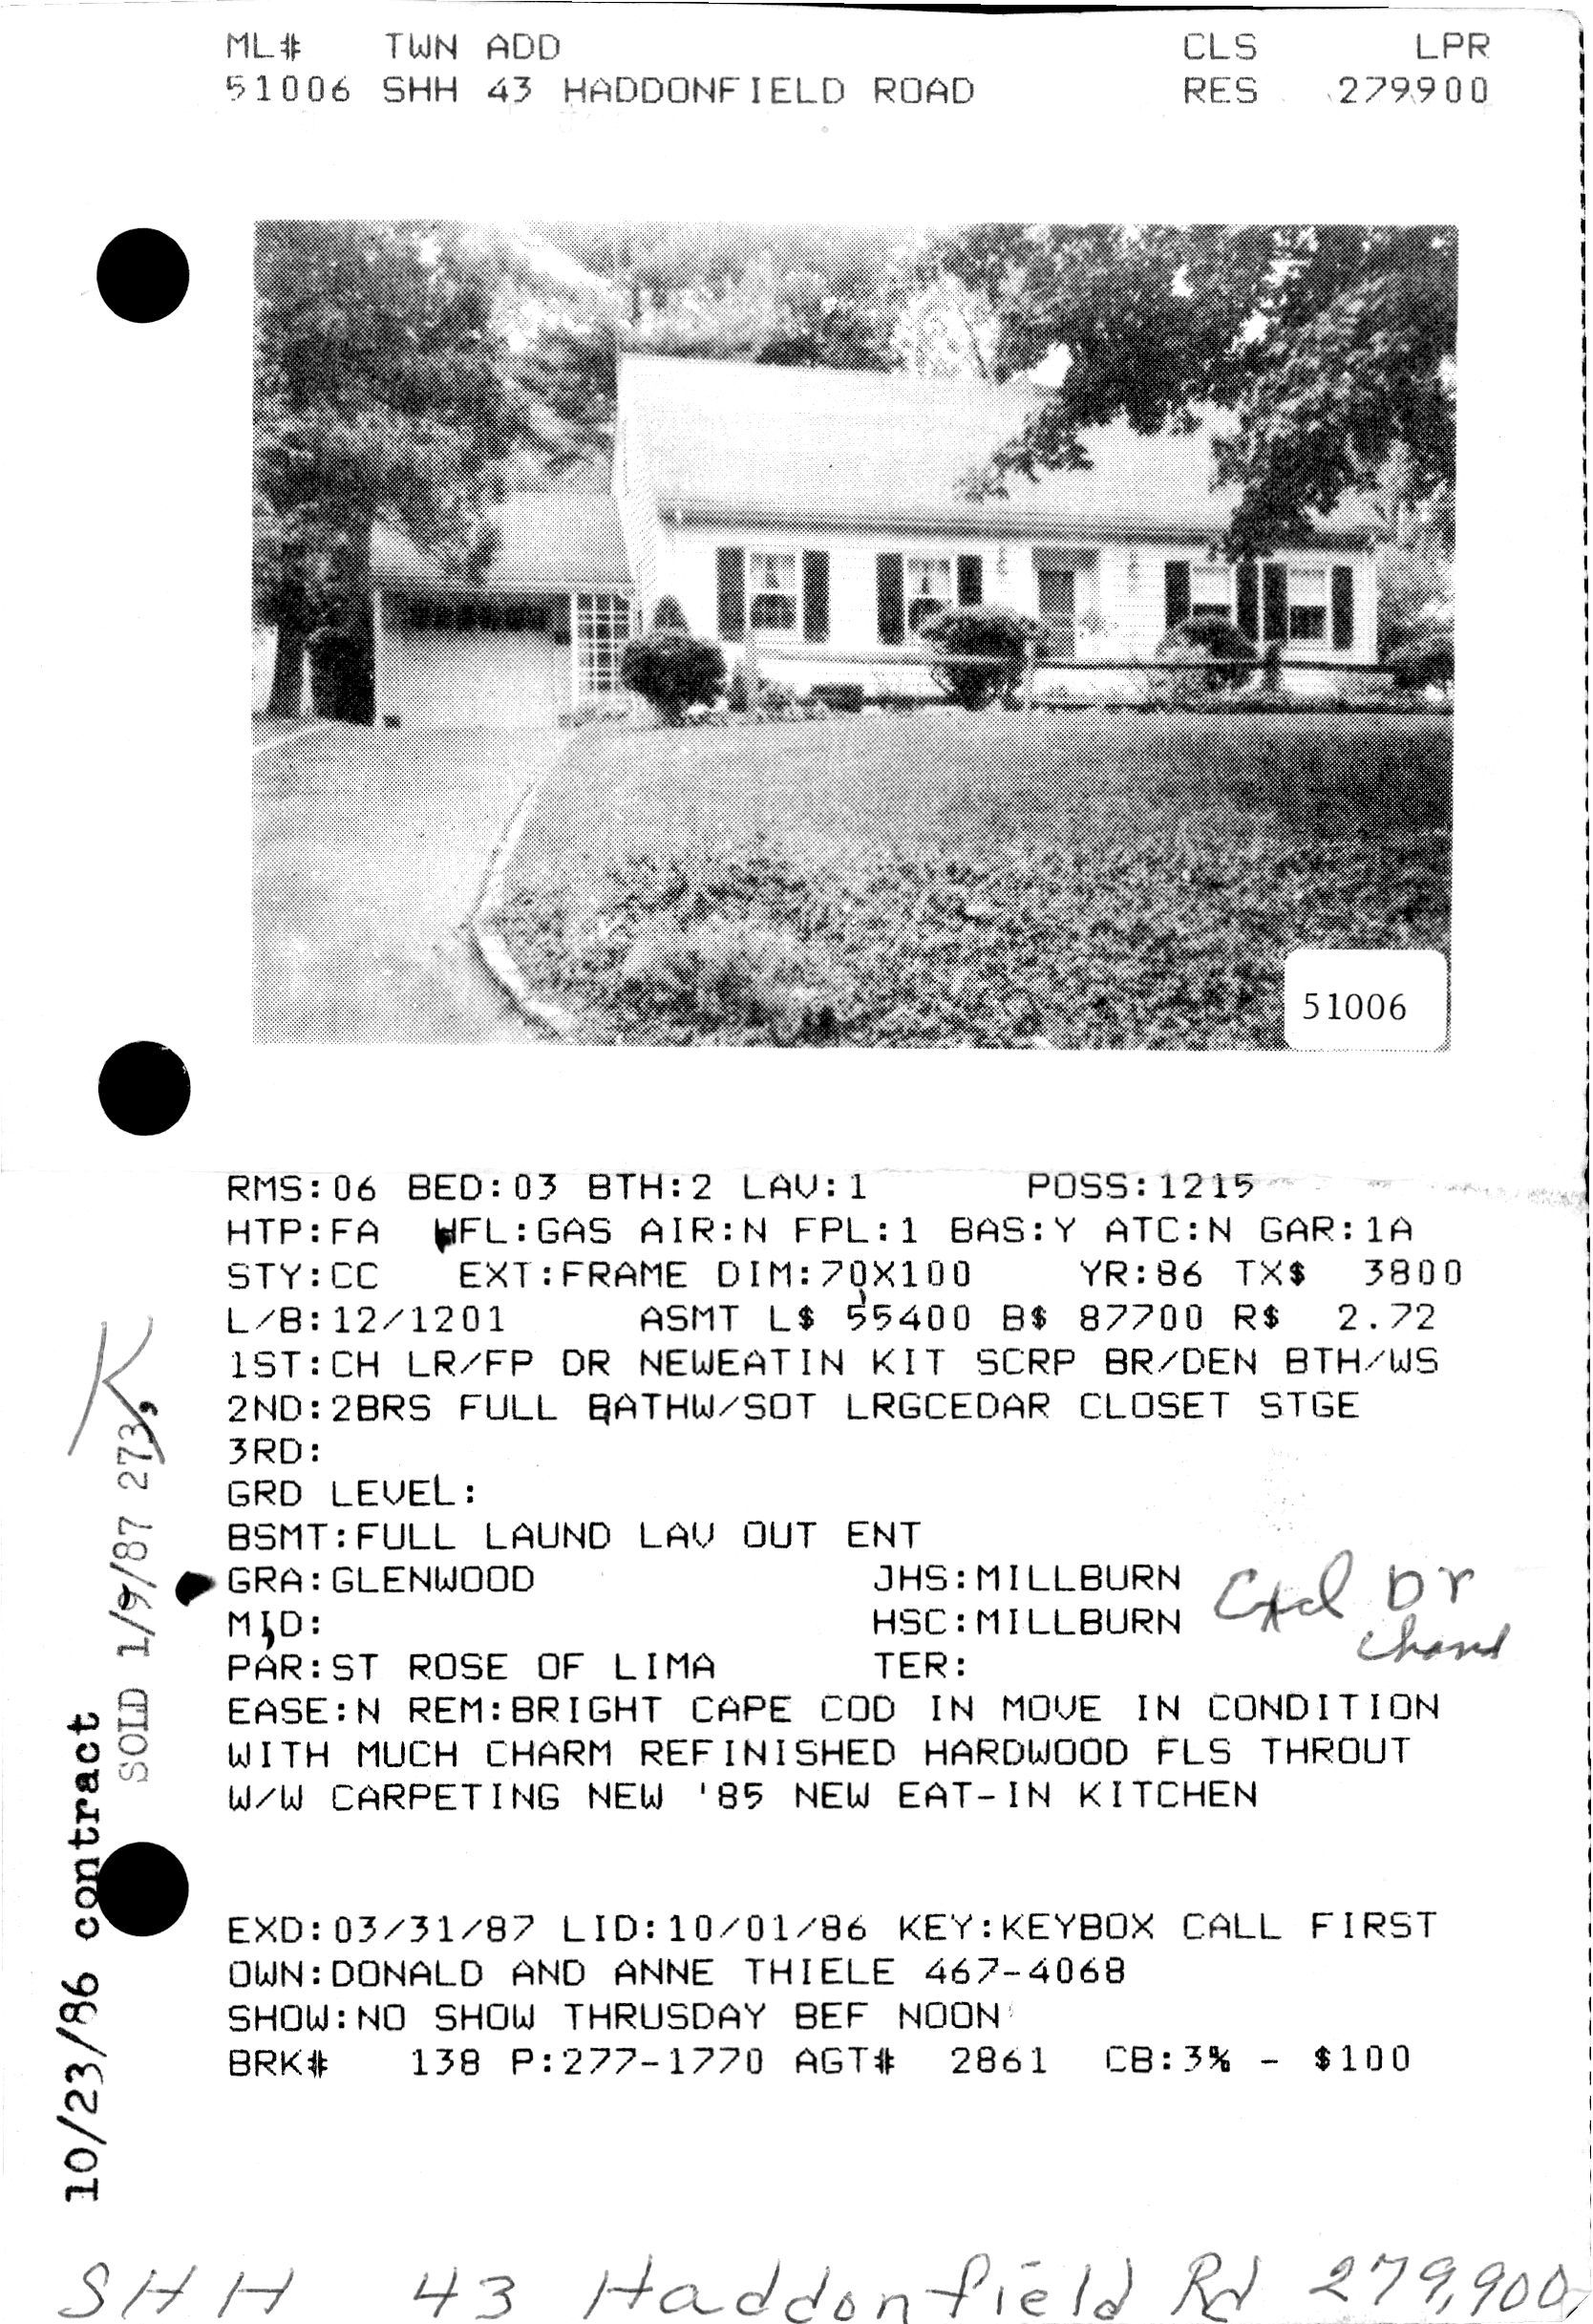 ML# TWN ADD CLS LPR
51006 SHH 43 HADDONFIELD ROAD RES 279900
51006
RMS:06 BED:03 BTH:2 LAV:1 POSS:1215
HTP:FA HFL:GAS AIR:N FPL:1 BAS:Y ATC:N GAR:1A
STY:CC EXT:FRAME DIM:70X100 YR:86 TX$ 3800
L/B:12/1201 ASMT L$ 55400 B$ 87700 R$ 2.72
1ST:CH LR/FP DR NEWEATIN KIT SCRP BR/DEN BTH/WS
2ND:2BRS FULL BATHW/SOT LRGCEDAR CLOSET STGE
3RD:
GRD LEVEL:
BSMT:FULL LAUND LAV OUT ENT
GRA:GLENWOOD JHS:MILLBURN
MID: HSC:MILLBURN
PAR:ST ROSE OF LIMA TER:
EASE:N REM:BRIGHT CAPE COD IN MOVE IN CONDITION
WITH MUCH CHARM REFINISHED HARDWOOD FLS THROUT
W/W CARPETING NEW '85 NEW EAT-IN KITCHEN
EXD:03/31/87 LID:10/01/86 KEY:KEYBOX CALL FIRST
OWN:DONALD AND ANNE THIELE 467-4068
SHOW:NO SHOW THRUSDAY BEF NOON
BRK# 138 P:277-1770 AGT# 2861 CB:3% - $100
DR
10/23/86 contract
SOLD 1/9/87 273,
K
SHH 43 Haddonfield Rd 279,900